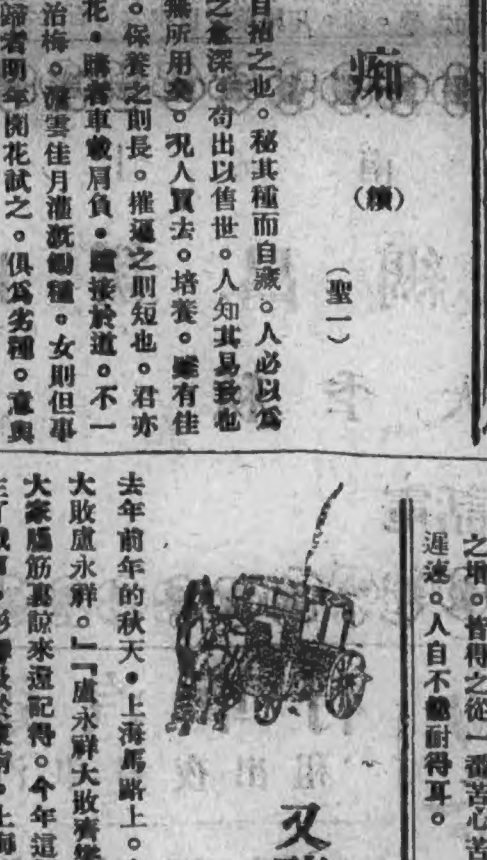 痴
(續)
(聖一)
自拍之也。秘其種而自藏。人必以爲
之愈深。苟出以售世。人知其易致也
無所用矣。况人買去。培養。雖有佳
。保養之則長。摧逼之則短也。君亦
花。購者車載肩負。踵接於道。不一
治梅。清雲佳月灌溉鋤種。女則但事
歸者明年開花試之。俱爲劣種。意與
之境。皆得之從一番苦心苦
遲速。人自不能耐得耳。
又
去年前年的秋天。上海馬路上。
大敗盧永祥。』『盧永祥大敗齊
大家腦筋裏諒來還記得。今年這